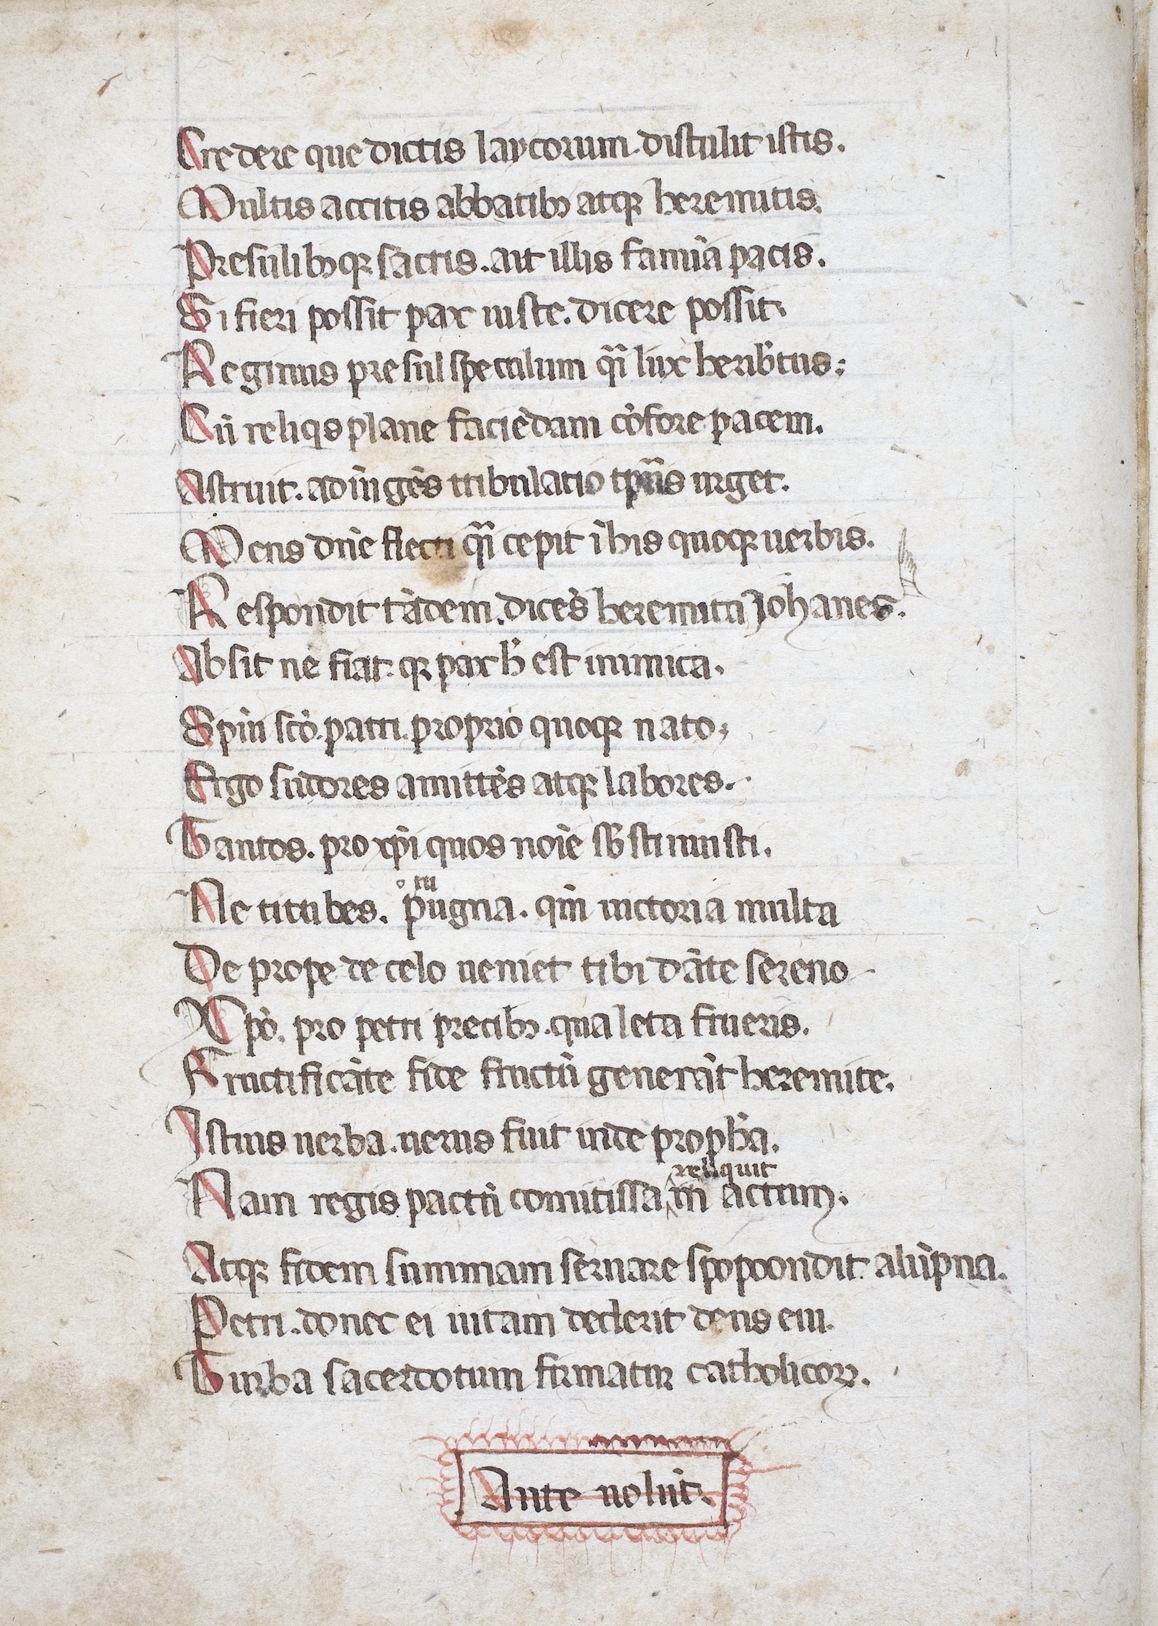 Credere que dictis laycorum distulit istis.
Multis accitis abbatibꝫ atqꝫ heremitis.
Presulibꝫqꝫ sāctis. ait illis famīa pacis.
Si fieri possit pax iuste. dicere possit.
Reginus presul speculum qͣi lux heribt̄us:
Cū reliqs plane faciēdam cōfore pacem.
Astruit. ad īgēs tribulatio tp̄ris urget.
Mens dn̄e flecti qͣi cepit ī his quoqꝫ uerbis.
Respondit tādem. dicēs heremita Johanes.
Absit ne fiat. qꝫ pax h̄ est inimica.
Spūi scō. patri. proprio quoqꝫ nato;
Ergo sudores amittēs atqꝫ labores.
Tantos. pro xp̄i quos noīe sb̄stinuisti.
Ne titubes. ͦpugna. qm̄ uictoria multa
tu
De prope de celo ueniet tibi dāte sereno
Xp̄o. pro petri precibꝫ. qua leta frueris.
Fructificāte fide fructū generāt heremite.
Istius uerba. uerus fuit inde proph̄a.
reliquit
Nam regis pactū comitissa in actum.
Atqꝫ fidem summam seruare spopoondit alūpna.
Petri. donec ei uitam dederit deus eui.
Turba sacerdotum firmatur catholicoꝝ.
Ante uoluit.